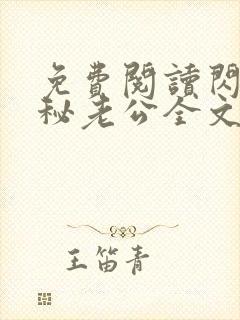 免費閱讀閃
秘老公全文
王笛青